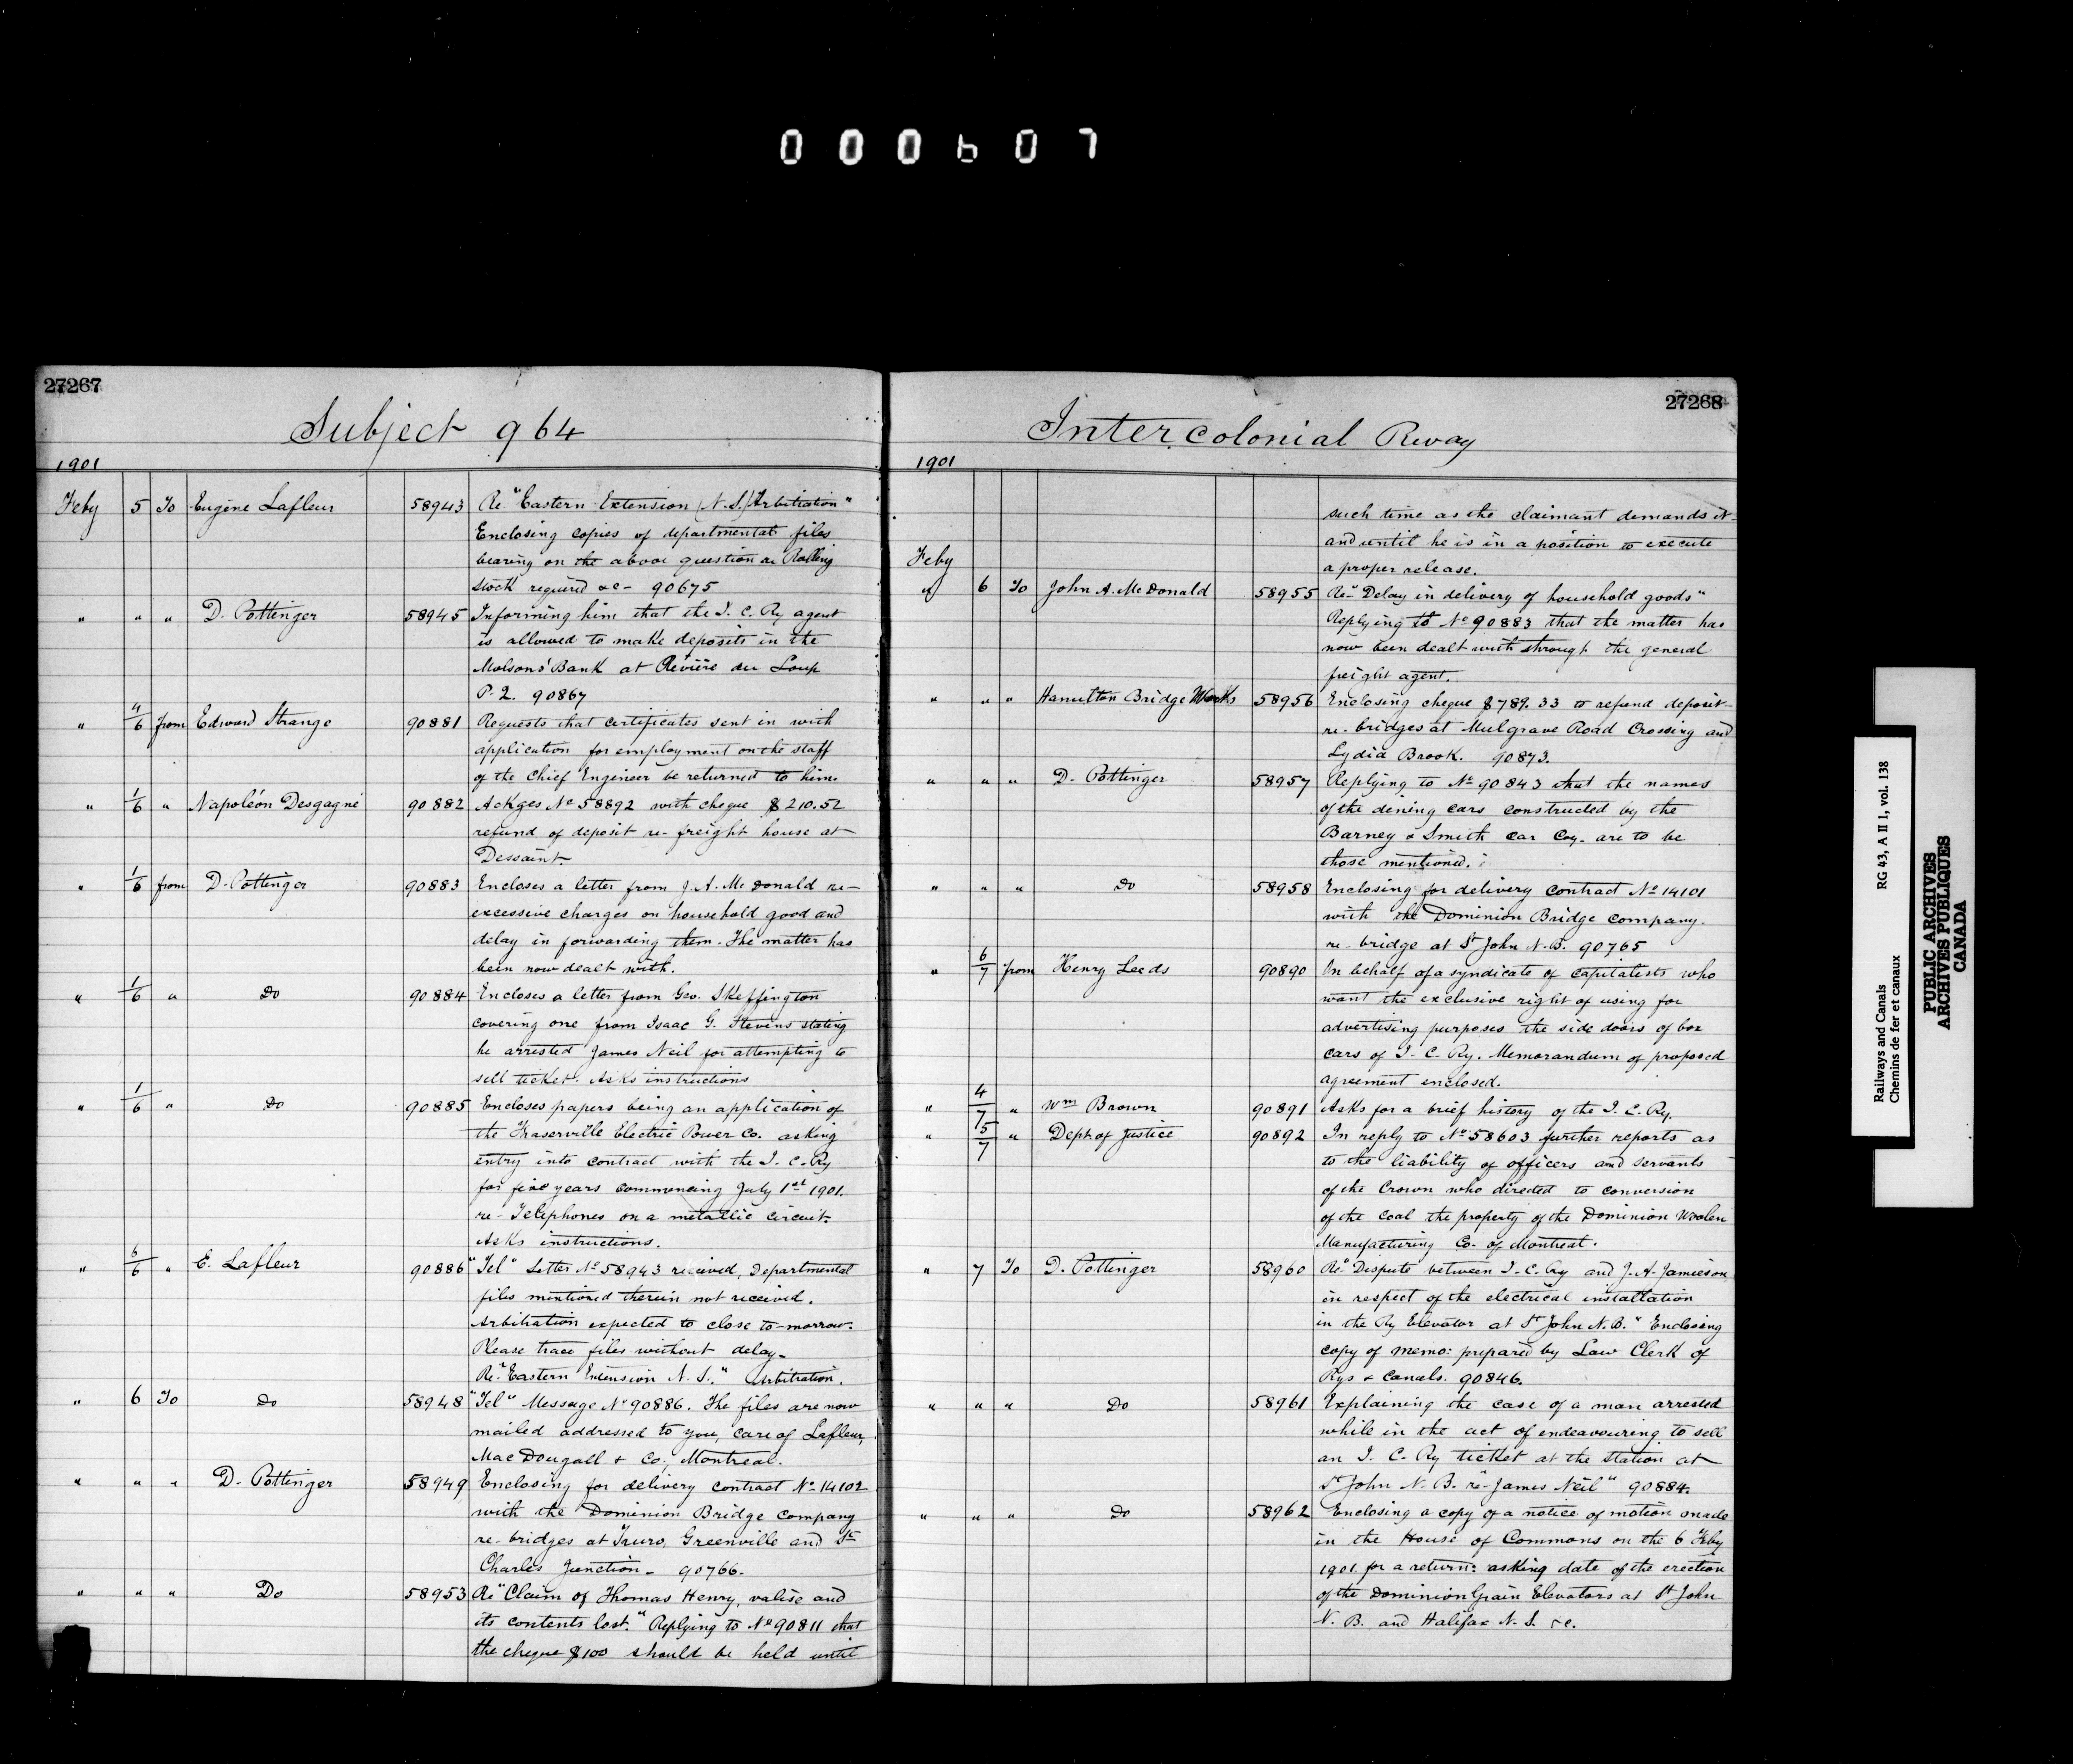 000607
27267
Subject 964
1901
Feby 5 To Eugène Lafleur 58943 Re "Eastern Extension (N.S.) Arbitration"
Enclosing copies of departmental files
bearing on the above question re Rolling
stock required &c - 90675
" " " D. Pottinger 58945 Informing him that the I. C. Ry agent
is allowed to make deposits in the
Molsons' Bank at Rivière du Loup
P.2. 90867
" 4/6 from Edward Strange 90881 Requests that certificates sent in with
application for employment on the staff
of the Chief Engineer be returned to him.
" 1/6 " Napoléon Desgagné 90882 Ackges No 58892 with cheque $210.52
refund of deposit re- freight house at
Dessaint.
" 1/6 from D. Pottinger 90883 Encloses a letter from J. A. McDonald re-
excessive charges on household good and
delay in forwarding them. The matter has
been now dealt with.
" 1/6 " Do 90884 Encloses a letter from Geo. Skeffington
covering one from Isaac G. Stevens stating
he arrested James Neil for attempting to
sell ticket. Asks instructions
" 1/6 " Do 90885 Encloses papers being an application of
the Fraserville Electric Power Co. asking
entry into contract with the I. C. Ry
for five years commencing July 1st 1901.
re- Telephones on a metallic circuit.
Asks instructions.
" 6/6 " E. Lafleur 90886 "Tel" Letter No 58943 received, Departmental
files mentioned therein not received.
Arbitration expected to close to-morrow.
Please trace files without delay-
Re "Eastern Extension N. S." Arbitration.
" 6 To Do 58948 "Tel" Message No 90886. The files are now
mailed addressed to you, care of Lafleur,
MacDougall & Co; Montreal.
" " " D. Pottinger 58949 Enclosing for delivery contract No 14102
with the Dominion Bridge Company
re- bridges at Truro, Greenville and St
Charles Junction - 90766.
" " " Do 58953 Re "Claim of Thomas Henry, valise and
its contents lost." Replying to No 90811 that
the cheque $100 should be held until
27268
Intercolonial Rway
1901
such time as the claimant demands it
and until he is in a position to execute
a proper release.
Feby
" 6 To John A. McDonald 58955 Re- "Delay in delivery of household goods"
Replying to No 90883 that the matter has
now been dealt with through the general
freight agent.
" " " Hamilton Bridge Works 58956 Enclosing cheque $789.33 to refund deposit-
re- bridges at Mulgrave Road Crossing and
Lydia Brook. 90873.
" " " D. Pottinger 58957 Replying to No 90843 that the names
of the dining cars constructed by the
Barney & Smith Car Coy. are to be
those mentioned.
" " " Do 58958 Enclosing for delivery contract No 14101
with the Dominion Bridge Company.
re- bridge at St John N.B. 90765
" 6/7 from Henry Leeds 90890 On behalf of a syndicate of capitalists who
want the exclusive right of using for
advertising purposes the side doors of box
cars of I. C. Ry. Memorandum of proposed
agreement enclosed.
" 4/7 " Wm Brown 90891 Asks for a brief history of the I. C. Ry.
" 5/7 " Dept. of Justice 90892 In reply to No 58603 further reports as
to the liability of officers and servants
of the Crown who directed to conversion
of the coal the property of the Dominion Woolen
Manufacturing Co. of Montreal.
" 7 To D. Pottinger 58960 Re "Dispute between I. C. Ry and J. A. Jamieson
in respect of the electrical installation
in the Ry Elevator at St John N.B." Enclosing
copy of memo: prepared by Law Clerk of
Rys & Canals. 90846.
" " " Do 58961 Explaining the case of a man arrested
while in the act of endeavouring to sell
an I. C. Ry ticket at the station at
St John N. B. re "James Neil" 90884.
" " " Do 58962 Enclosing a copy of a notice of motion made
in the House of Commons on the 6 Feby
1901 for a return: asking date of the erection
of the Dominion Grain Elevators at St John
N. B. and Halifax N. S. &c.
Railways and Canals RG 43, A II 1, vol. 138
Chemins de fer et canaux
PUBLIC ARCHIVES
ARCHIVES PUBLIQUES
CANADA